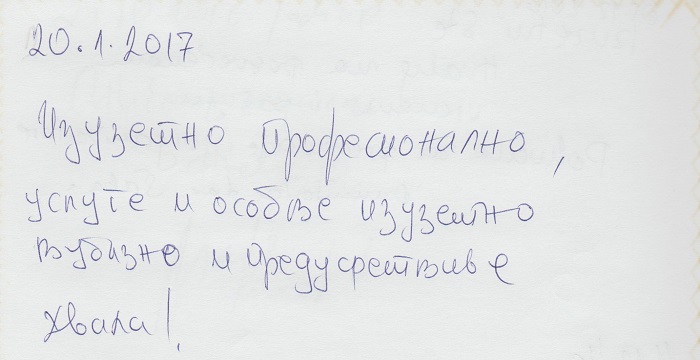 20.1.2017
Изузетно професионално,
услуге и особље изузетно
љубазно и предусретљиве
Хвала!